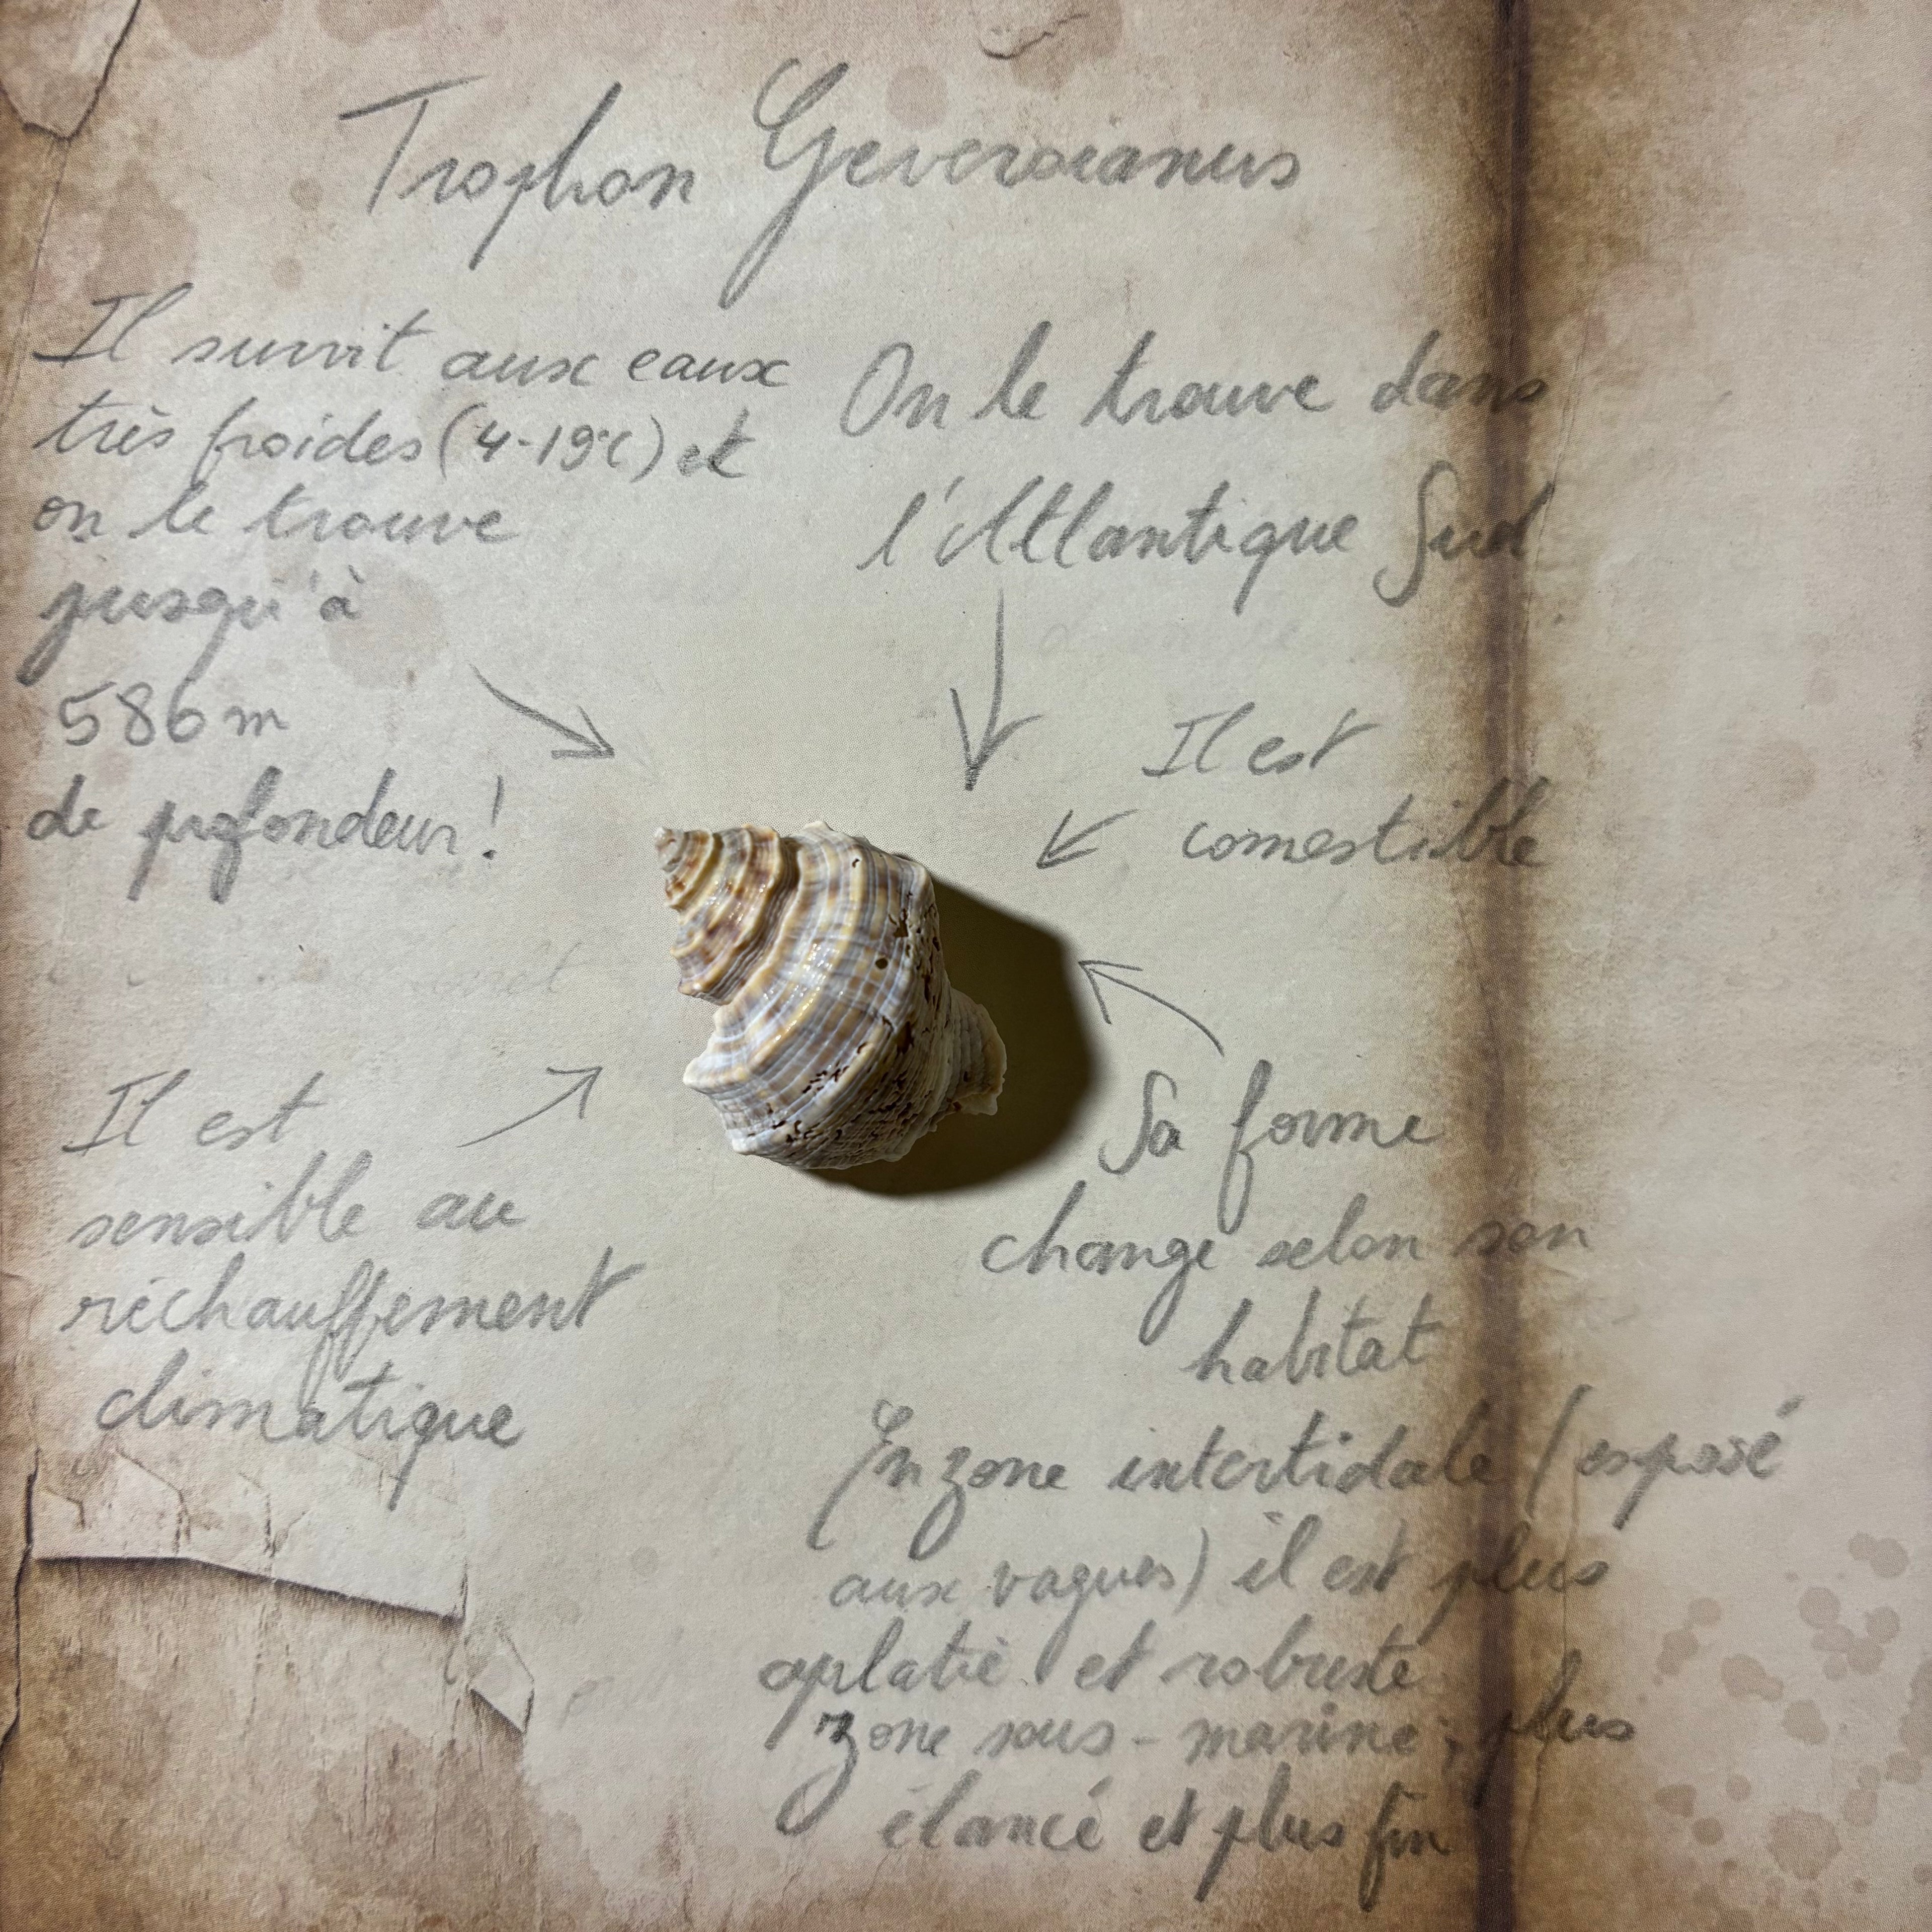 Trophon Geversianus
Il survit aux eaux
très froides (4-19°C) et
on le trouve
jusqu'à
586 m
de profondeur !
On le trouve dans
l'Atlantique Sud
Il est
comestible
Il est
sensible au
réchauffement
climatique
Sa forme
change selon son
habitat
En zone intertidale (exposé
aux vagues) il est plus
aplatie et robuste
zone sous-marine ; plus
élancé et plus fin